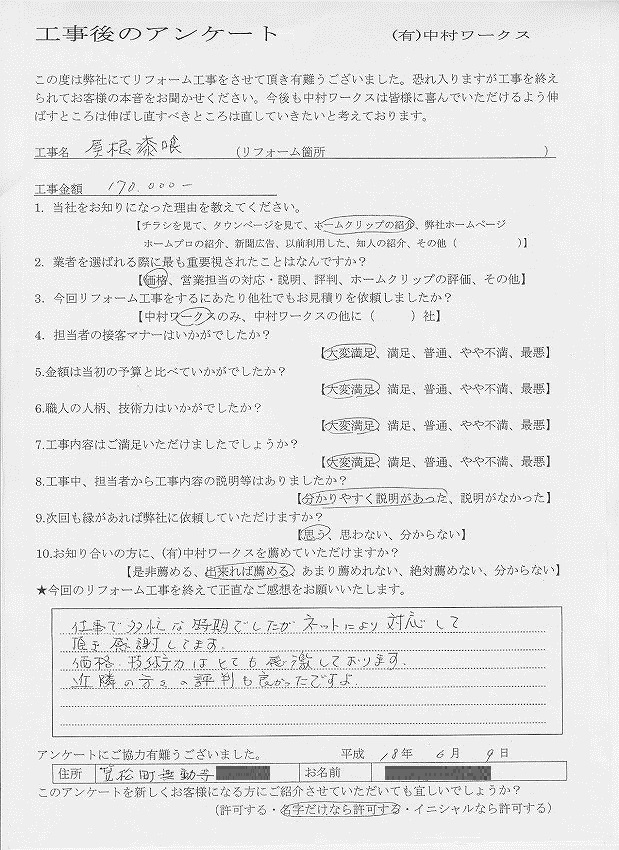 工事後のアンケート (有)中村ワークス
この度は弊社にてリフォーム工事をさせて頂き有難うございました。恐れ入りますが工事を終え
られてお客様の本音をお聞かせください。今後も中村ワークスは皆様に喜んでいただけるよう伸
ばすところは伸ばし直すべきところは直していきたいと考えております。
工事名 屋根漆喰 (リフォーム箇所 )
工事金額 170.000−
1. 当社をお知りになった理由を教えてください。
【チラシを見て、タウンページを見て、ホームクリップの紹介、弊社ホームページ
ホームプロの紹介、新聞広告、以前利用した、知人の紹介、その他（ )】
2. 業者を選ばれる際に最も重要視されたことはなんですか？
【価格、営業担当の対応・説明、評判、ホームクリップの評価、その他】
3. 今回リフォーム工事をするにあたり他社でもお見積りを依頼しましたか？
【中村ワークスのみ、中村ワークスの他に（ ）社】
4. 担当者の接客マナーはいかがでしたか？
【大変満足、満足、普通、やや不満、最悪】
5.金額は当初の予算と比べていかがでしたか？
【大変満足、満足、普通、やや不満、最悪】
6.職人の人柄、技術力はいかがでしたか？
【大変満足、満足、普通、やや不満、最悪】
7.工事内容はご満足いただけましたでしょうか？
【大変満足、満足、普通、やや不満、最悪】
8.工事中、担当者から工事内容の説明等はありましたか？
【分かりやすく説明があった、説明がなかった】
9.次回も縁があれば弊社に依頼していただけますか？
【思う、思わない、分からない】
10.お知り合いの方に、(有)中村ワークスを薦めていただけますか？
【是非薦める、出来れば薦める、あまり薦めれない、絶対薦めない、分からない】
★今回のリフォーム工事を終えて正直なご感想をお願いいたします。
仕事で多忙な時期でしたが ネットにより 対応して
頂き感謝してます.
価格・技術力はとても感激しております.
近隣の方々の評判も良かったですよ.
アンケートにご協力有難うございました。 平成 18年 6月 9日
住所 お名前
このアンケートを新しくお客様になる方にご紹介させていただいても宜しいでしょうか？
（許可する・名字だけなら許可する・イニシャルなら許可する）